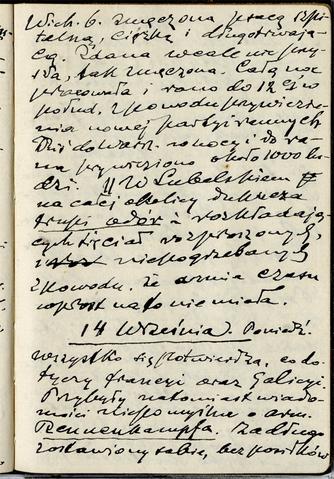 Wich. b. zmęczona pracą szpi-
talną, ciężką i długotrwają-
cą. Zdana wcale nie przy-
szła, tak zmęczona. Całą noc
pracowała i rano do 12ej w
połud. z powodu przywiezie-
nia nowej partyi rannych.
Dziś do Warsz. w nocy i do ra-
na przywieziono około 1000 lu-
dzi. || W Lubelskiem
na całej okolicy dokucza
trupi odór z rozkładają-
cych się ciał rozproszonych,
niepogrzebanych
z powodu, że armia czasu
wprost na to nie miała.
14 Września. Poniedz.
Wszystko się potwierdza, co do-
tyczy Francyi oraz Galicyi.
Przybyły natomiast wiado-
mości niepomyślne o arm.
Rennenkampfa. Za długo
zostawiony sobie, bez posiłków